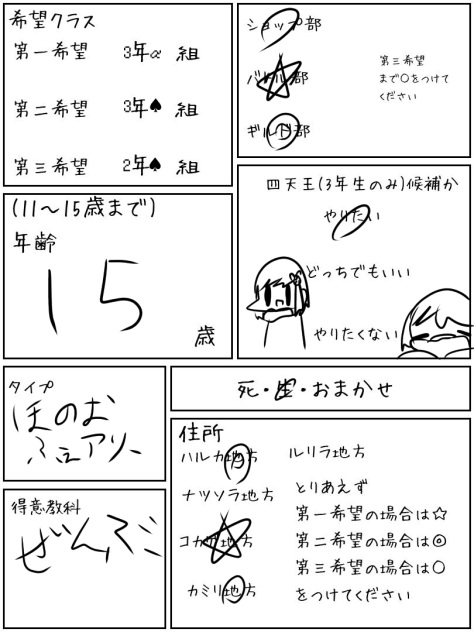 希望クラス
第一希望 3年α 組
第二希望 3年♠ 組
第三希望 2年♠ 組
ショップ部
バトル部
ギルド部
第三希望
まで○をつけて
ください
(11〜15歳まで)
年齢
15
歳
四天王(3年生のみ)候補か
やりたい
どっちでもいい
やりたくない
タイプ
ほのお
フェアリー
死・生・おまかせ
得意教科
ぜんぶ
住所
ハルカ地方
ルリラ地方
ナツソラ地方
コカゲ地方
カミリ地方
とりあえず
第一希望の場合は☆
第二希望の場合は◎
第三希望の場合は○
をつけてください